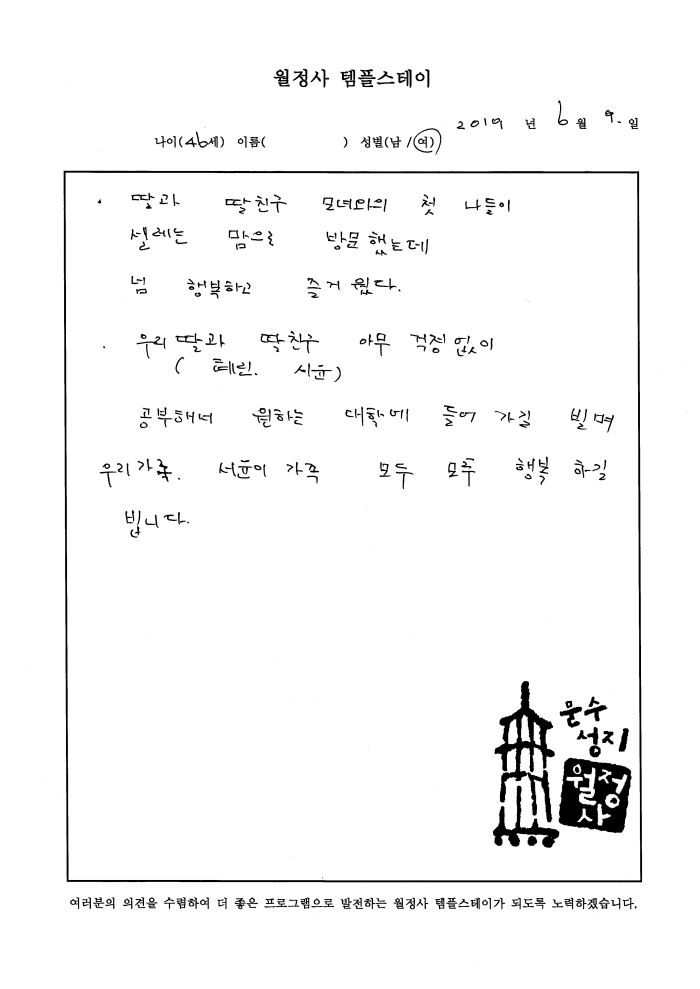 월정사 템플스테이
2019 년 6 월 9. 일
나이(46세) 이름( ) 성별(남 / 여)
· 딸과 딸친구 모녀와의 첫 나들이
셀레는 맘으로 방문했는데
넘 행복하고 즐거웠다.
· 우리 딸과 딸친구 아무 걱정없이
( 혜린. 시윤)
공부해서 원하는 대학에 들어 가길 빌며
우리가족. 서윤이 가족 모두 모두 행복 하길
빕니다.
문수
성지
월정
사
여러분의 의견을 수렴하여 더 좋은 프로그램으로 발전하는 월정사 템플스테이가 되도록 노력하겠습니다.